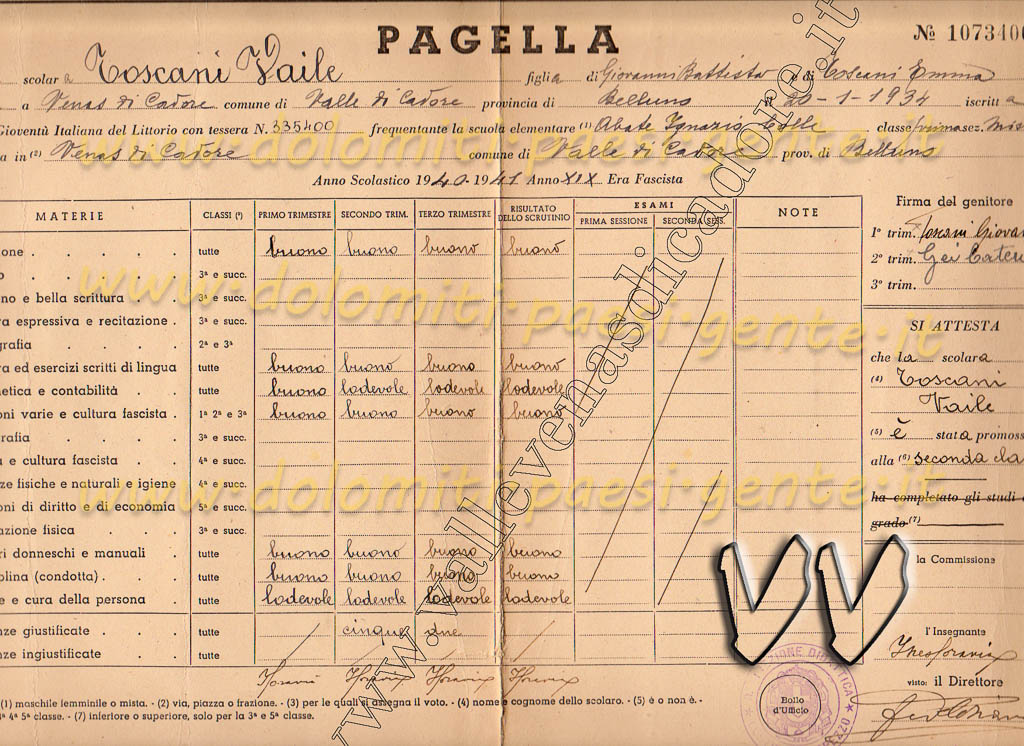 PAGELLA
№ 1073400
scolara Toscani Vaile figlia di Giovanni Battista e di Toscani Emma
a Venas di Cadore comune di Valle di Cadore provincia di Belluno il 20-1-1934 iscritta a
Gioventù Italiana del Littorio con tessera N. 335400 frequentante la scuola elementare (1) Abate Ignazio Colle classe prima sez.
a in (2) Venas di Cadore comune di Valle di Cadore prov. di Belluno
Anno Scolastico 1940-1941 Anno XIX Era Fascista
MATERIE CLASSI (³) PRIMO TRIMESTRE SECONDO TRIM. TERZO TRIMESTRE RISULTATO DELLO SCRUTINIO ESAMI PRIMA SESSIONE SECONDA SESS. NOTE
one . . . . . tutte buono buono buono buono
o . . . . . 3ª e succ.
no e bella scrittura . . 3ª e succ.
a espressiva e recitazione . 3ª e succ.
grafia . . . . 2ª e 3ª
ra ed esercizi scritti di lingua tutte buono buono buono buono
etica e contabilità . . tutte buono lodevole lodevole lodevole
oni varie e cultura fascista . 1ª 2ª e 3ª buono buono buono buono
rafia . . . . 3ª e succ.
a e cultura fascista . . 4ª e succ.
ze fisiche e naturali e igiene 4ª e succ.
oni di diritto e di economia 5ª e succ.
azione fisica . . . 3ª e succ.
ri donneschi e manuali . tutte buono buono buono buono
olina (condotta) . . . tutte buono buono buono buono
e e cura della persona . tutte lodevole lodevole lodevole lodevole
nze giustificate . . . tutte cinque due
nze ingiustificate . . tutte
(1) maschile femminile o mista. - (2) via, piazza o frazione. - (3) per le quali si assegna il voto. - (4) nome e cognome dello scolaro. - (5) è o non è. -
4ª 5ª classe. - (7) inferiore o superiore, solo per la 3ª e 5ª classe.
Firma del genitore
1º trim. Toscani Giovan
2º trim.
3º trim.
SI ATTESTA
che la scolara
(4) Toscani
Vaile
(5) è stata promoss
alla (6) seconda cla
ha completato gli studi
grado (7)
la Commissione
l'Insegnante
visto: il Direttore
Bollo
d'Ufficio
www.dolomiti-paesi-gente.it
www.dolomiti-paesi-gente.it
www.dolomiti-paesi-gente.it
www.vallevenasdicadore.it
VV